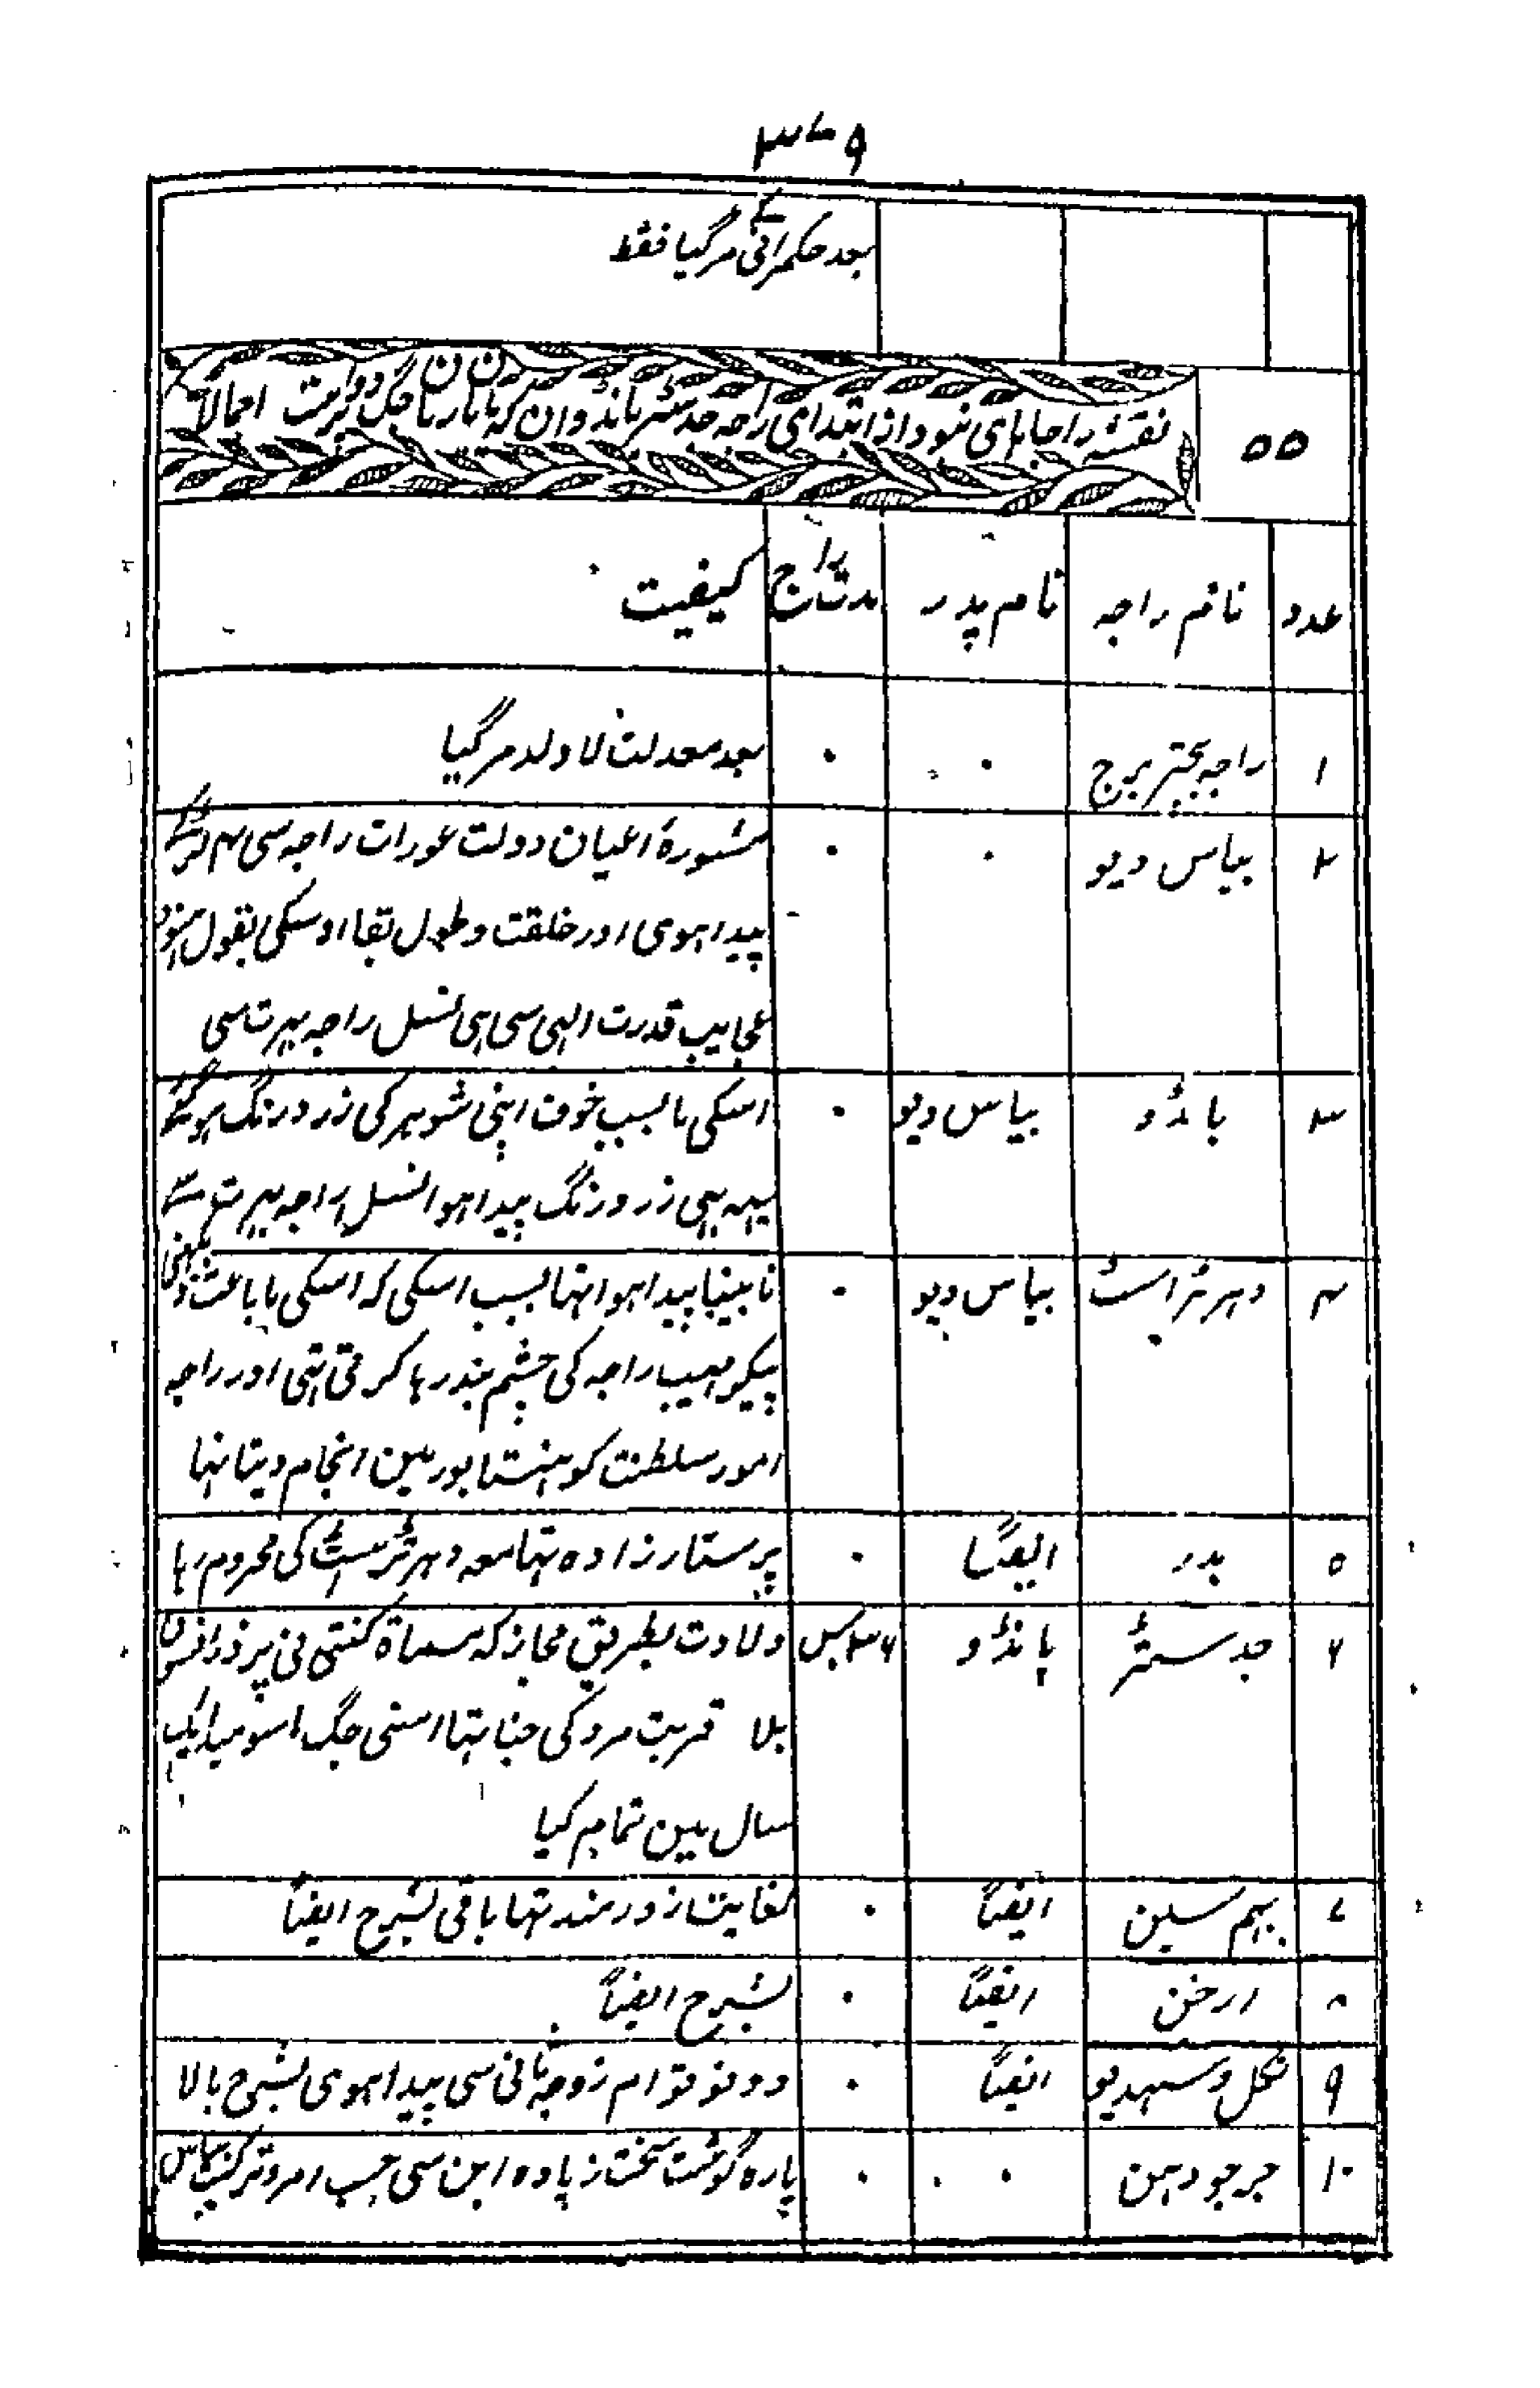 ۳۷۹
بعد حکمرانی کے مر گیا فقط
۵۵ نقشہ راجاہای ہنود از ابتدای راجہ جدہشتر پانڈوان کہ اجمالاً
عدد نام راجہ نام پدر مدت راج کیفیت
۱ راجہ بچتر برج ۰ ۰ بعد معدلت لاولد مر گیا
۲ بیاس دیو ۰ ۰ مشورۂ اعیان دولت عورات راجہ سی
پیدا ہوی اور خلقت و طول بقا اوسکی بقول ہنود
عجایب قدرت الہی سی ہی نسل راجہ بہرت سی
۳ پانڈو بیاس دیو ۰ اسکی ما بسبب خوف اپنی شوہر کی زرد رنگ ہوگئی
یہہ بہی زرد رنگ پیدا ہوا نسل راجہ بہرتہہ سے
۴ دہرتراست بیاس دیو ۰ نابینا پیدا ہوا تہا بسبب اسکی کہ اسکی ما باعث
پیکر مہیب راجہ کی چشم بند رہا کرتی تہی اور راجہ
امور سلطنت کو ہنستاپور مین انجام دیتا تہا
۵ بدر ایضاً ۰ پرستار زادہ تہا معہ دہرتراست کی محروم رہا
۶ جدہستر پانڈو ۳۶ برس ولادت بطریق مجاز کہ مسماۃ کنتی نی
بلا قربت مرد کی جنا تہا اسنی جگ اسومید ایک
سال مین تمام کیا
۷ بہیم سین ایضاً ۰ بغایت زورمند تہا باقی بشرح ایضاً
۸ ارجن ایضاً ۰ بشرح ایضاً
۹ نکل و سہدیو ایضاً ۰ دونو توام زوجہ ثانی سی پیدا ہوی بشرح بالا
۱۰ جرجودہن ۰ ۰ پارہ گوشت سخت زیادہ سی حسب امر بیاس